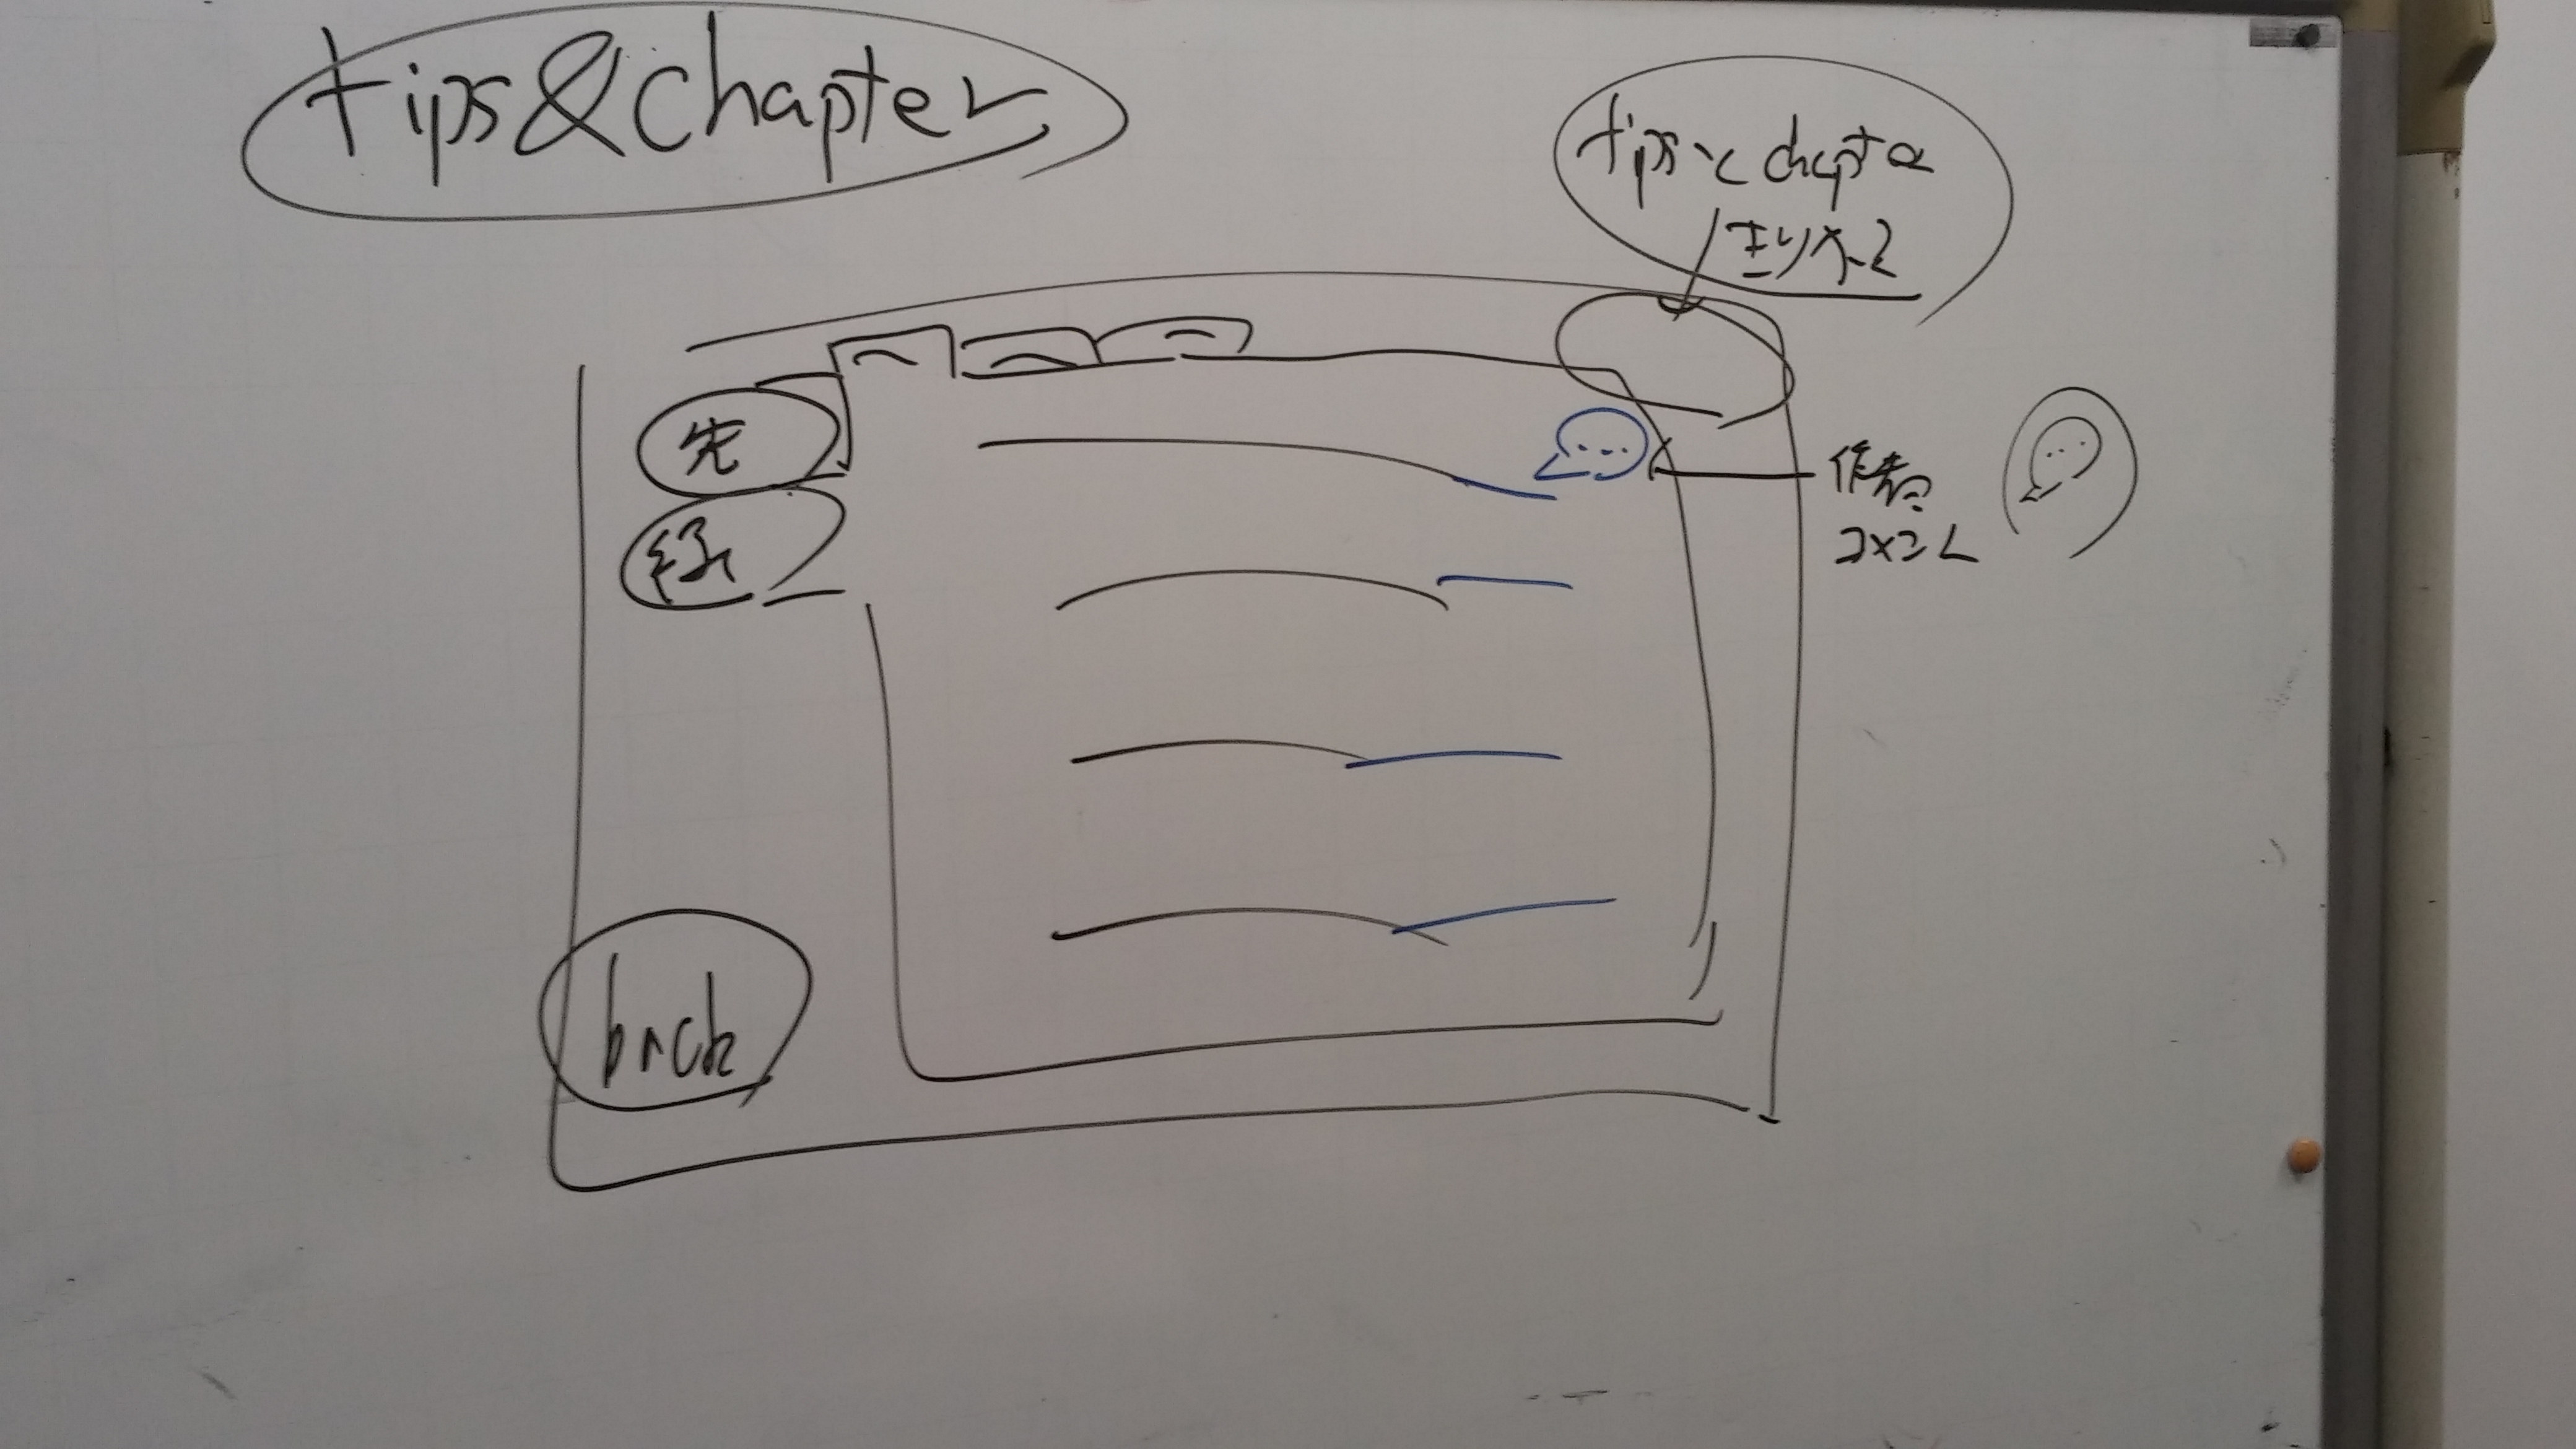 tips&chapter
tipsとchapter
きりかえ
先
作者
コメント
back